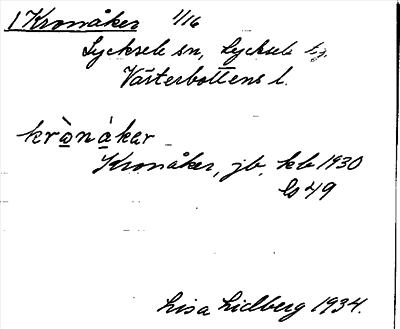 1 Kronåker 1/16
Lycksele sn, Lycksele lg.
Västerbottens l.
krònàkar
Kronåker, jb, kb 1930
bl 49
Lisa Lidberg 1934.